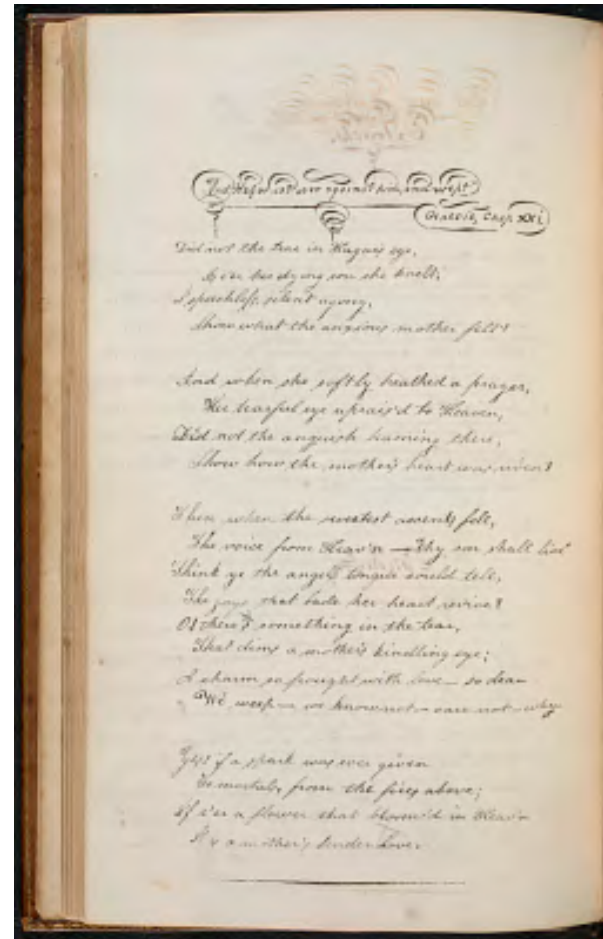 And she sat over against him, and wept
Genesis, Chap. XXI
Did not the tear in Hagar's eye,
As o'er her dying son she knelt,
In speechless, silent agony,
Show what the anxious mother felt?
And when she softly breathed a prayer,
Her tearful eye uprais'd to Heaven,
Did not the anguish beaming there,
Show how the mother's heart was riven?
Then when the sweetest accents fell,
The voice from Heav'n — Thy son shall live
Think ye the angel's tongue could tell,
The joys that bade her heart revive?
O! there's something in the tear,
That dims a mother's kindling eye;
A charm so fraught with love — so dear
We weep — we know not — care not — why
Yes! if a spark was ever given
To mortals, from the fires above;
If e'er a flower that bloom'd in Heav'n
It is a mother's tender Love.